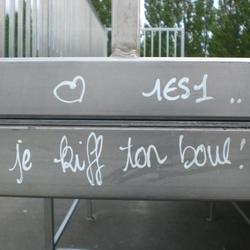 ♡ 1ES1 ..
je kiff ton boul!